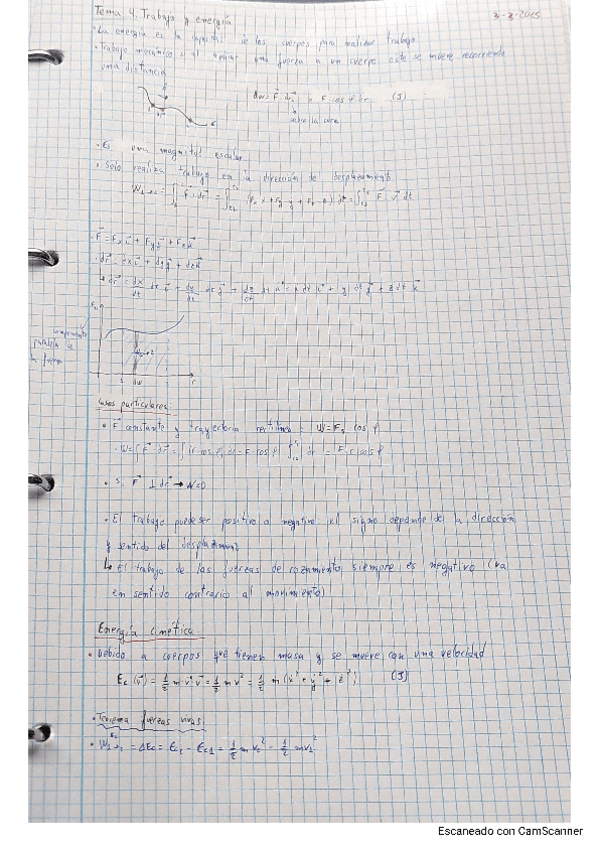 Tema 4. Trabajo y energía
3-3-2025
• La energía es la capacidad de los cuerpos para realizar trabajo
• Trabajo mecánico: si al aplicar una fuerza a un cuerpo este se mueve recorriendo
una distancia
dw = F⃗ · dr⃗ = F cos φ dr (J)
sobre la curva
• Es una magnitud escalar
• Solo realiza trabajo en la dirección de desplazamiento
F⃗ = Fx i⃗ + Fy j⃗ + Fz k⃗
dr⃗ = dx i⃗ + dy j⃗ + dz k⃗
componente
paralela a
la fuerza
dw
r
Casos particulares:
• F⃗ constante y trayectoria rectilínea: W = F · cos φ
• Si F⃗ ⊥ dr⃗ → W=0
• El trabajo puede ser positivo o negativo el signo depende de la dirección
y sentido del desplazamiento
↳ El trabajo de las fuerzas de rozamiento siempre es negativo (va
en sentido contrario al movimiento)
Energía cinética:
• Debido a cuerpos que tienen masa y se mueve con una velocidad
Ec (v⃗) = 1/2 m · v⃗ · v⃗ = 1/2 m v² = 1/2 m (ẋ² + ẏ² + ż²) (J)
• Teorema fuerzas vivas:
• W1→2 = ΔEc = Ec2 - Ec1 = 1/2 m v2² - 1/2 m v1²
Escaneado con CamScanner